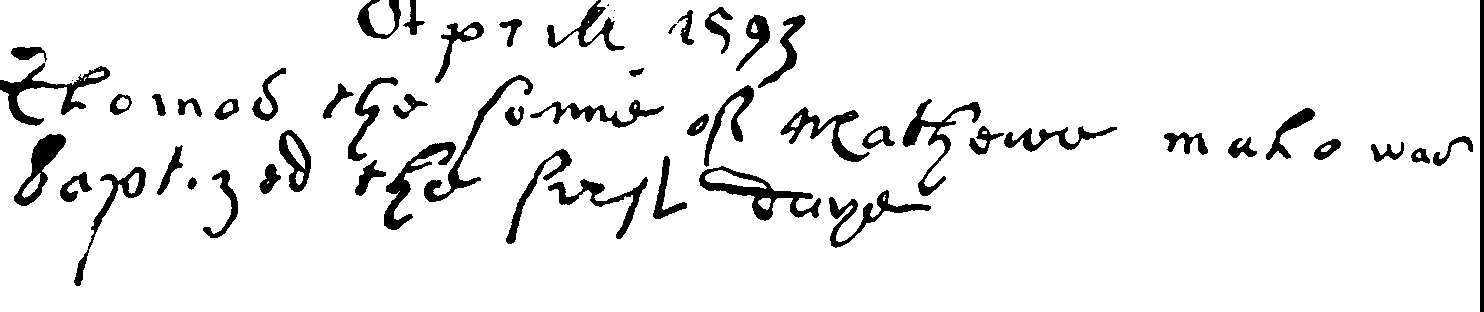 Aprill 1593
Thomas the sonne of Mathewe was
baptized the first daye